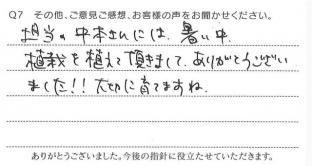 Q7 その他、ご意見ご感想、お客様の声をお聞かせください。
担当の中本さんには、暑い中、
植栽を植えて頂きまして、ありがとうござい
ました!! 大切に育てますね。
ありがとうございました。今後の指針に役立たせていただきます。